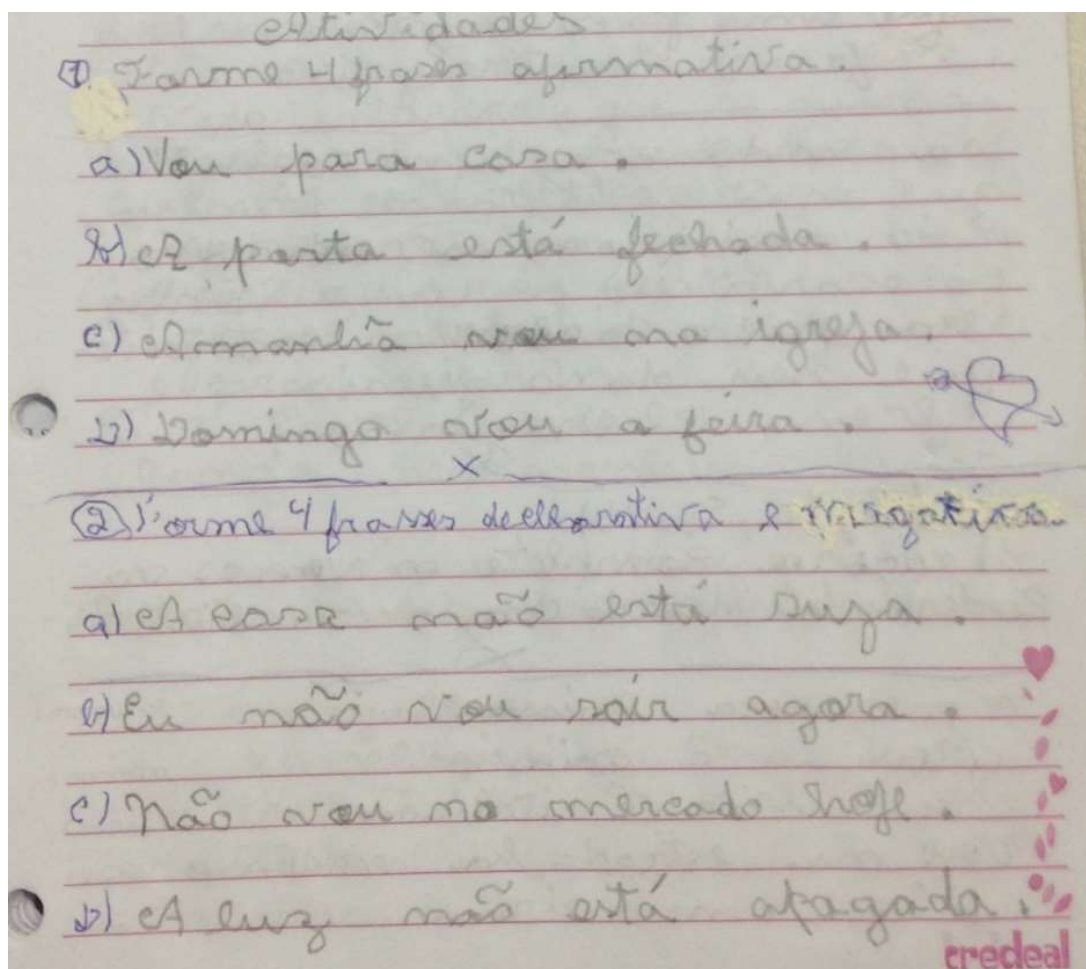 Atividades
① Forme 4 frases afirmativa.
a) Vou para casa.
b) A porta está fechada.
c) Amanhã vou na igreja.
D) Domingo vou a feira.
x
② Forme 4 frases declarativa e negativa.
a) A casa não está suja.
b) Eu não vou sair agora.
c) Não vou no mercado hoje.
D) A luz não está apagada.
credeal